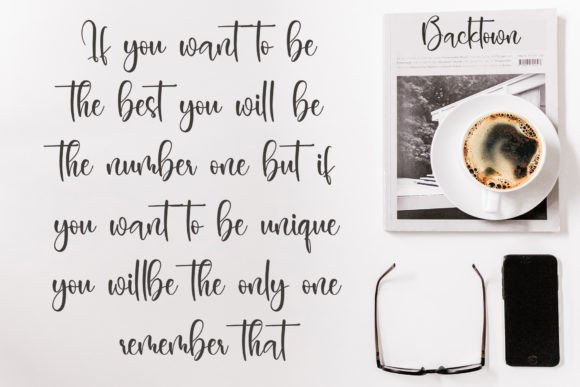 If you want to be
the best you will be
the number one but if
you want to be unique
you willbe the only one
remember that
Backtown